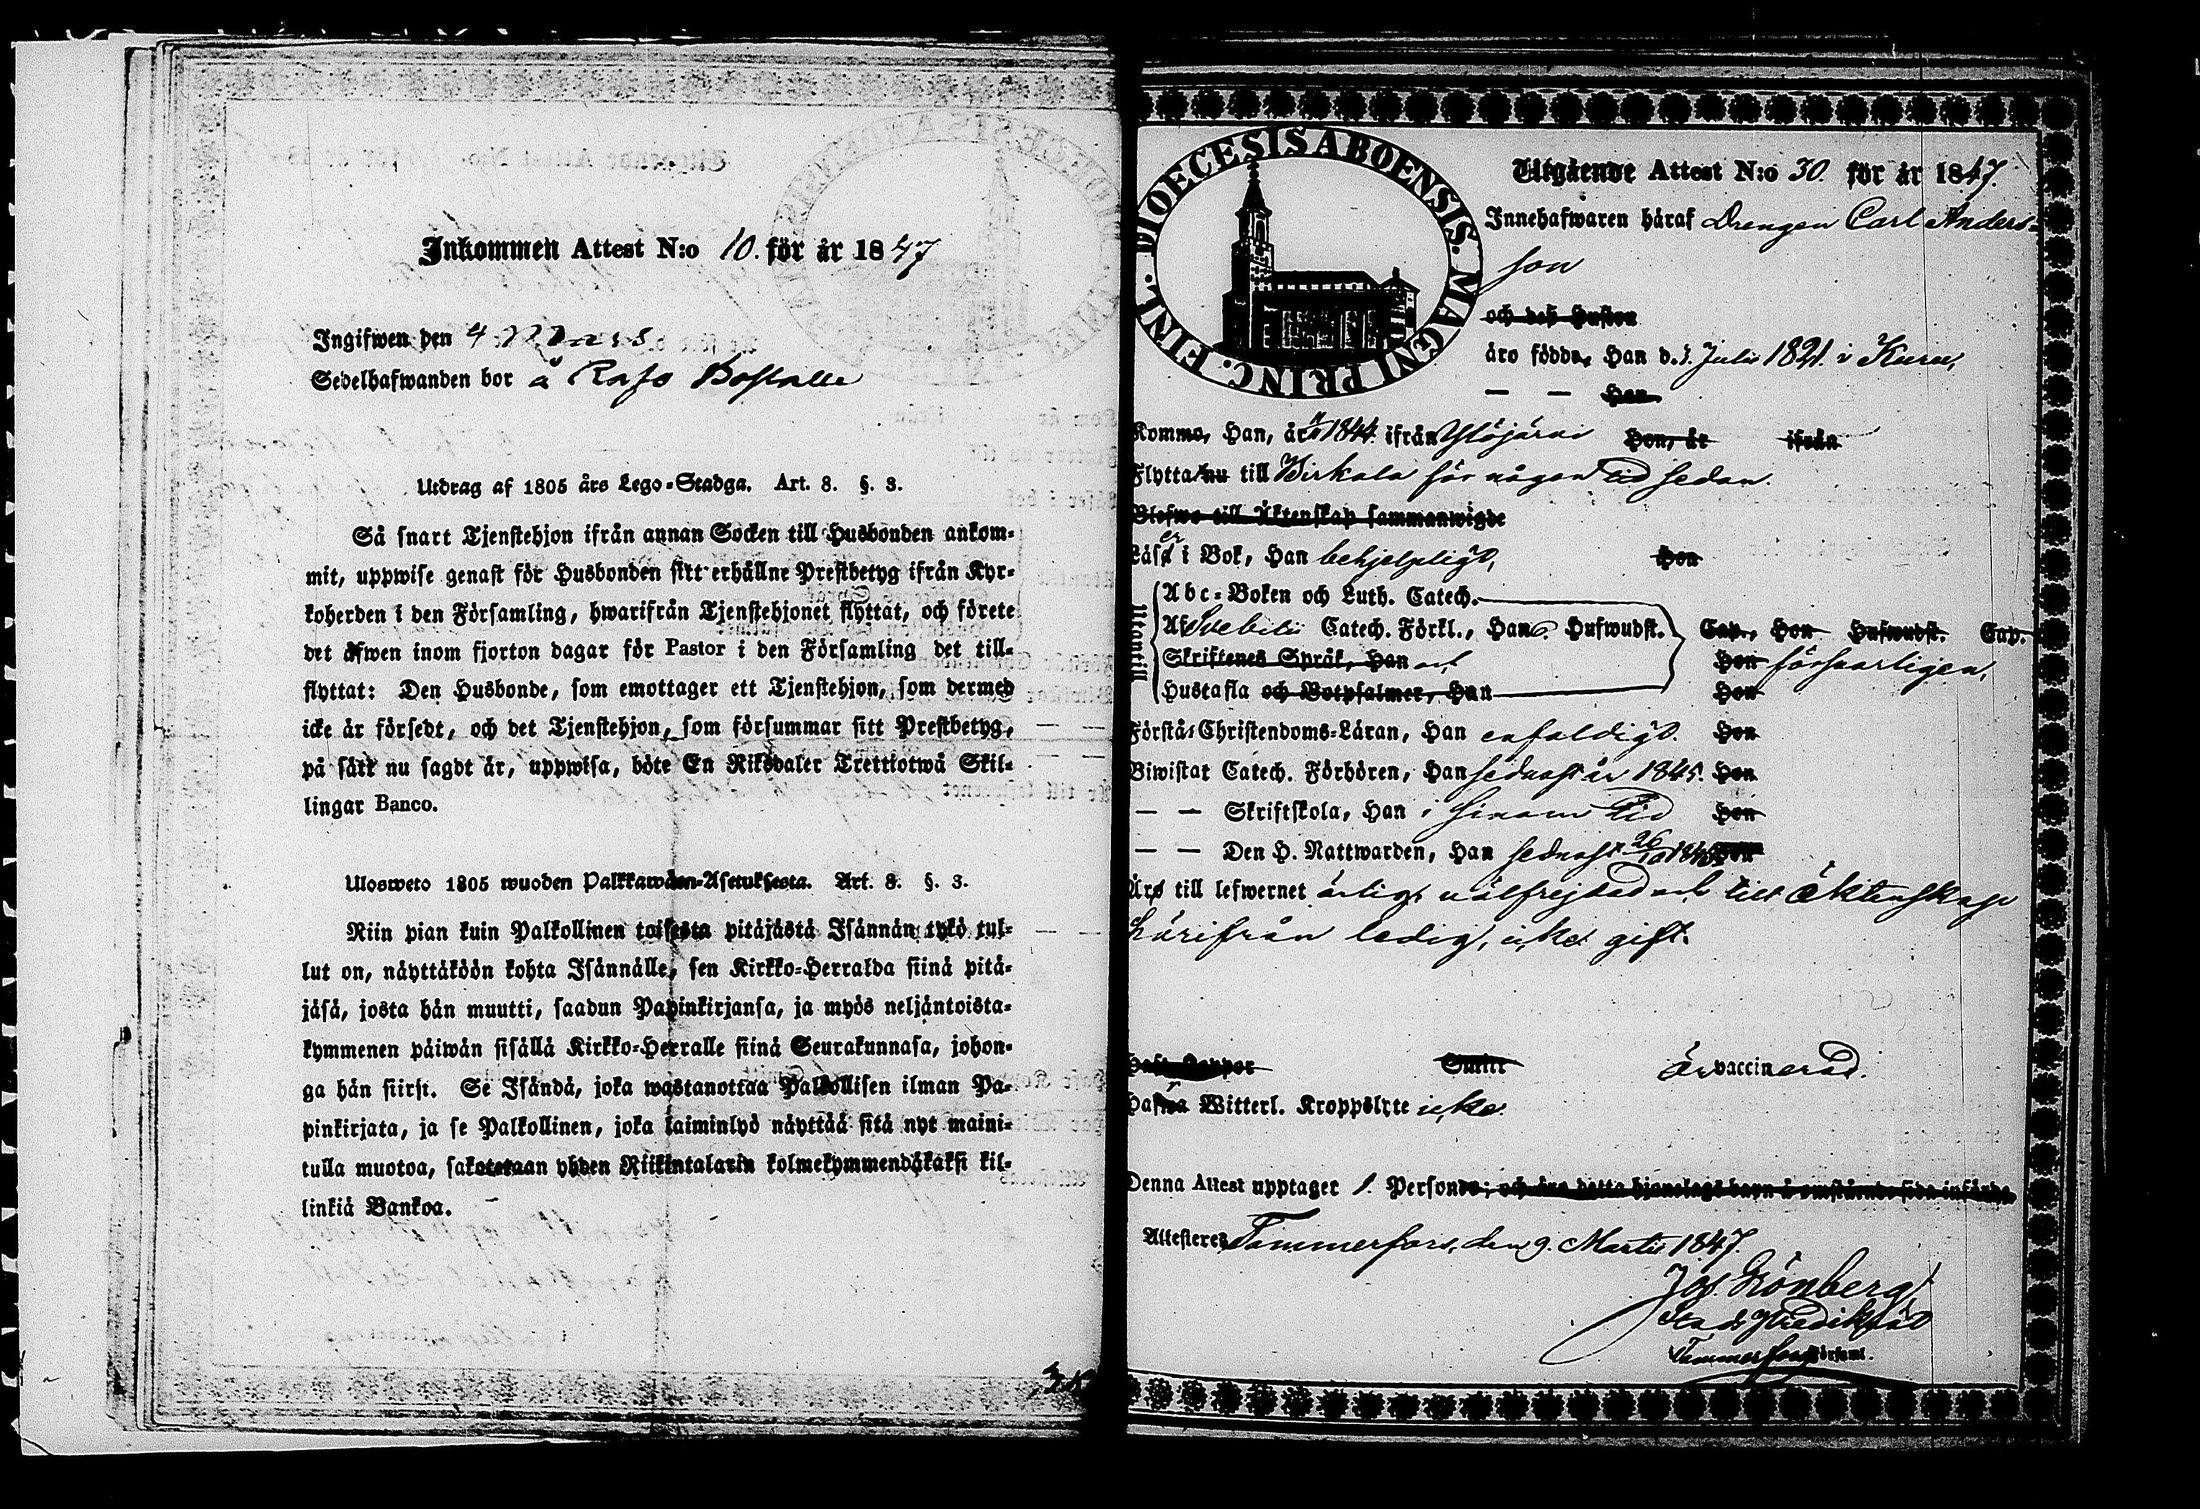 Inkommen Attest N:o 10. för år 1847
Ingifwen den 4 Mars
Sedelhafwanden bor å Rajo Bostalle
Utdrag af 1805 års Lego-Stadga. Art. 8. §. 3.
Så snart Tjenstehjon ifrån annan Socken till Husbonden ankom-
mit, uppwise genast för Husbonden sitt erhållne Prestbetyg ifrån Kyr-
koherden i den Församling, hwarifrån Tjenstehjonet flyttat, och förete
det äfwen inom fjorton dagar för Pastor i den Församling det till-
flyttat: Den Husbonde, som emottager ett Tjenstehjon, som dermed
icke är försedt, och det Tjenstehjon, som försummar sitt Prestbetyg,
på sätt nu sagdt är, uppwisa, böte En Riksdaler Trettiotwå Skil-
lingar Banco.
Ulosweto 1805 wuoden Palkkawäen-Asetuksesta. Art. 8. §. 3.
Niin pian kuin Palkollinen toisesta pitäjästä Isännän tykö tul-
lut on, näyttäköön kohta Isännälle, sen Kirkko-Herralda siinä pitä-
jäsä, josta hän muutti, saadun Papinkirjansa, ja myös neljäntoista-
kymmenen päiwän sisällä Kirkko-Herralle siinä Seurakunnasa, johon-
ga hän siirsi. Se Isändä, joka wastanottaa Palkollisen ilman Pa-
pinkirjata, ja se Palkollinen, joka laiminlyö näyttää sitä nyt maini-
tulla muotoa, sakotetaan yhden Riikintalarin kolmekymmendäkaksi kil-
linkiä Bankoa.
DIOECESIS ABOENSIS. MAGNI PRINC. FINL.
Utgående Attest N:o 30. för år 1847.
Innehafwaren häraf Drengen Carl Anders-
son
och deß Hustru
äro födde, Han d. Julii 1821. i Kuru,
— — Hon
Komme, Han, år 1844. ifrån Ylöjärvi Hon, år ifrån
Flytta nu till Birkala för någon tid sedan.
Blefwo till Äktenskap sammanwigde
Läser i Bok, Han behjelpligt, Hon
Utantill
Abc-Boken och Luth. Catech.
Af Svebilii Catech. Förkl., Han Hufwudst. Cap., Hon Hufwudst. Cap.
Skriftenes Språk, Han och Hon försvarligen,
Hustafla och Botpsalmer, Han Hon
Förstå Christendoms-Läran, Han enfaldigt. Hon
Biwistat Catech. Förhören, Han sednast år 1845. Hon
— — Skriftskola, Han i sinom tid Hon
— — Den H. Nattwarden, Han sednast 26/10 1845 Hon
Äro till lefwernet ärligt välfrejdad och till äktenskap
härifrån ledig, icke gift.
Haft Koppor Smitt är vaccinerad.
Hafwa Witterl. Kroppslyte icke.
Denna Attest upptager 1. Person; och äro detta hjonelags barn å omstående sida införde.
Attesteres Tammerfors, den 9. Martii 1847.
Jos. Grönberg
Stads Predikant
Tammerfors Församl.